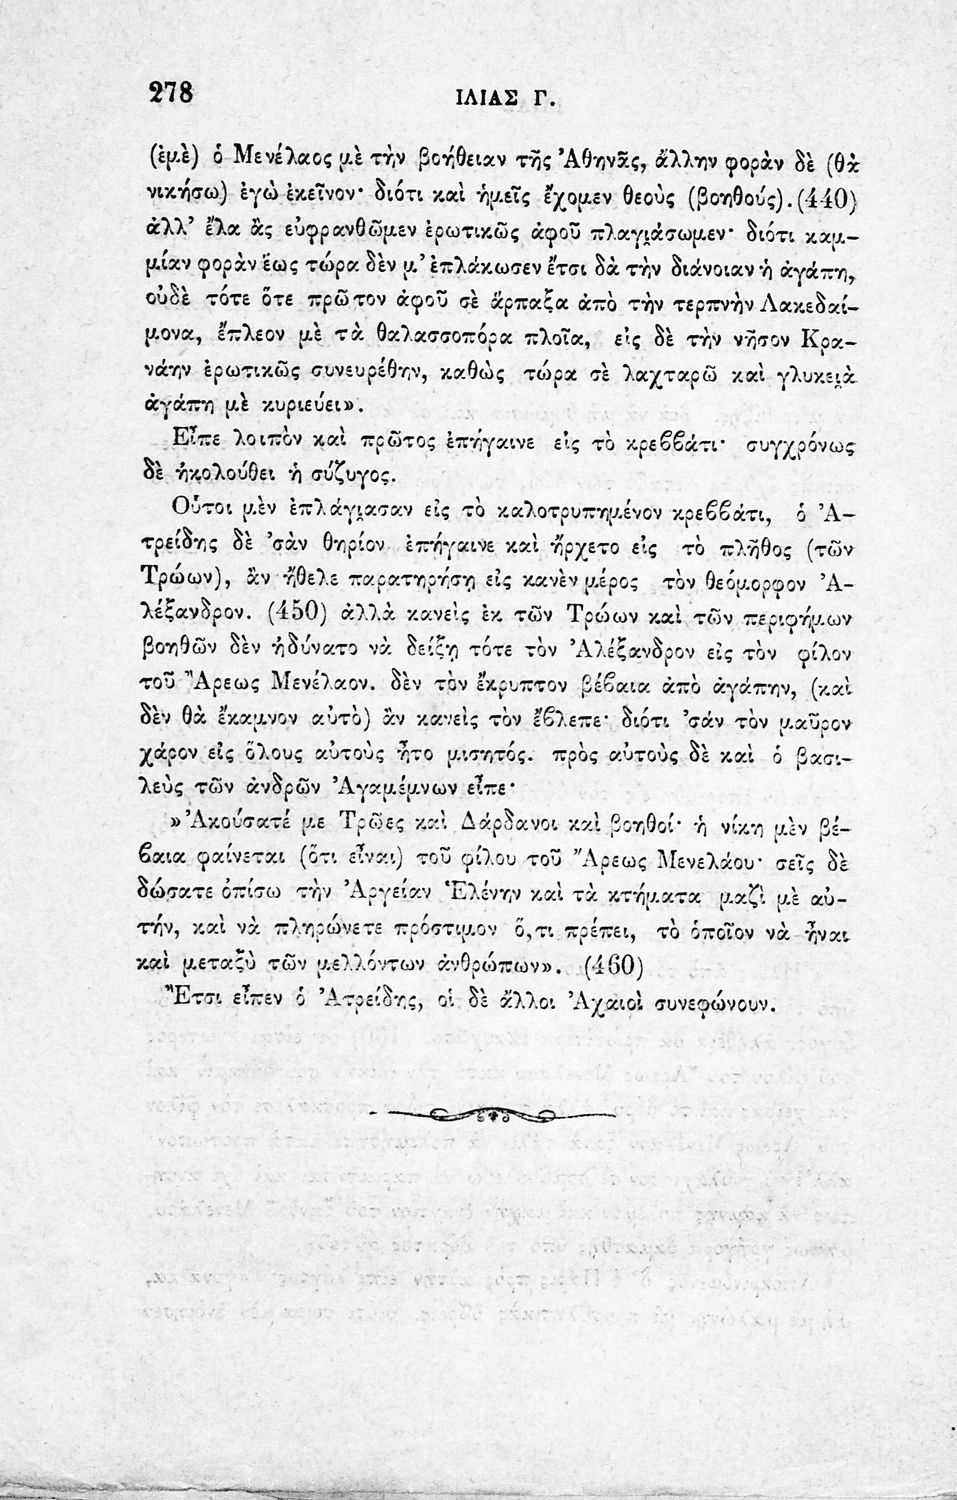 278
ΙΛΙΑΣ Γ.
(ἐμὲ) ὁ Μενέλαος μὲ τὴν βοήθειαν τῆς Ἀθηνᾶς, ἄλλην φορὰν δὲ (θὰ
νικήσω) ἐγὼ ἐκεῖνον· διότι καὶ ἡμεῖς ἔχομεν θεοὺς (βοηθούς).(440)
ἀλλ' ἔλα ἂς εὐφρανθῶμεν ἐρωτικῶς ἀφοῦ πλαγιάσωμεν· διότι καμ-
μίαν φορὰν ἕως τώρα δὲν μ' ἐπλάκωσεν ἔτσι δὰ τὴν διάνοιαν ἡ ἀγάπη,
οὐδὲ τότε ὅτε πρῶτον ἀφοῦ σὲ ἅρπαξα ἀπὸ τὴν τερπνὴν Λακεδαί-
μονα, ἔπλεον μὲ τὰ θαλασσοπόρα πλοῖα, εἰς δὲ τὴν νῆσον Κρα-
νάην ἐρωτικῶς συνευρέθην, καθὼς τώρα σὲ λαχταρῶ καὶ γλυκειὰ
ἀγάπη μὲ κυριεύει».
Εἶπε λοιπὸν καὶ πρῶτος ἐπήγαινε εἰς τὸ κρεββάτι· συγχρόνως
δὲ ἠκολούθει ἡ σύζυγος.
Οὗτοι μὲν ἐπλάγιασαν εἰς τὸ καλοτρυπημένον κρεββάτι, ὁ Ἀ-
τρείδης δὲ 'σὰν θηρίον ἐπήγαινε καὶ ἤρχετο εἰς τὸ πλῆθος (τῶν
Τρώων), ἂν ἤθελε παρατηρήσῃ εἰς κανὲν μέρος τὸν θεόμορφον Ἀ-
λέξανδρον. (450) ἀλλὰ κανεὶς ἐκ τῶν Τρώων καὶ τῶν περιφήμων
βοηθῶν δὲν ἠδύνατο νὰ δείξῃ τότε τὸν Ἀλέξανδρον εἰς τὸν φίλον
τοῦ Ἄρεως Μενέλαον. δὲν τὸν ἔκρυπτον βέβαια ἀπὸ ἀγάπην, (καὶ
δὲν θὰ ἔκαμνον αὐτὸ) ἂν κανεὶς τὸν ἔβλεπε· διότι 'σάν τὸν μαῦρον
χάρον εἰς ὅλους αὐτοὺς ἦτο μισητός. πρὸς αὐτοὺς δὲ καὶ ὁ βασι-
λεὺς τῶν ἀνδρῶν Ἀγαμέμνων εἶπε·
»Ἀκούσατέ με Τρῶες καὶ Δάρδανοι καὶ βοηθοί· ἡ νίκη μὲν βέ-
βαια φαίνεται (ὅτι εἶναι) τοῦ φίλου τοῦ Ἄρεως Μενελάου· σεῖς δὲ
δώσατε ὀπίσω τὴν Ἀργείαν Ἑλένην καὶ τὰ κτήματα μαζὶ μὲ αὐ-
τήν, καὶ νὰ πληρώνετε πρόστιμον ὅ,τι πρέπει, τὸ ὁποῖον νὰ ἦναι
καὶ μεταξὺ τῶν μελλόντων ἀνθρώπων». (460)
Ἔτσι εἶπεν ὁ Ἀτρείδης, οἱ δὲ ἄλλοι Ἀχαιοὶ συνεφώνουν.